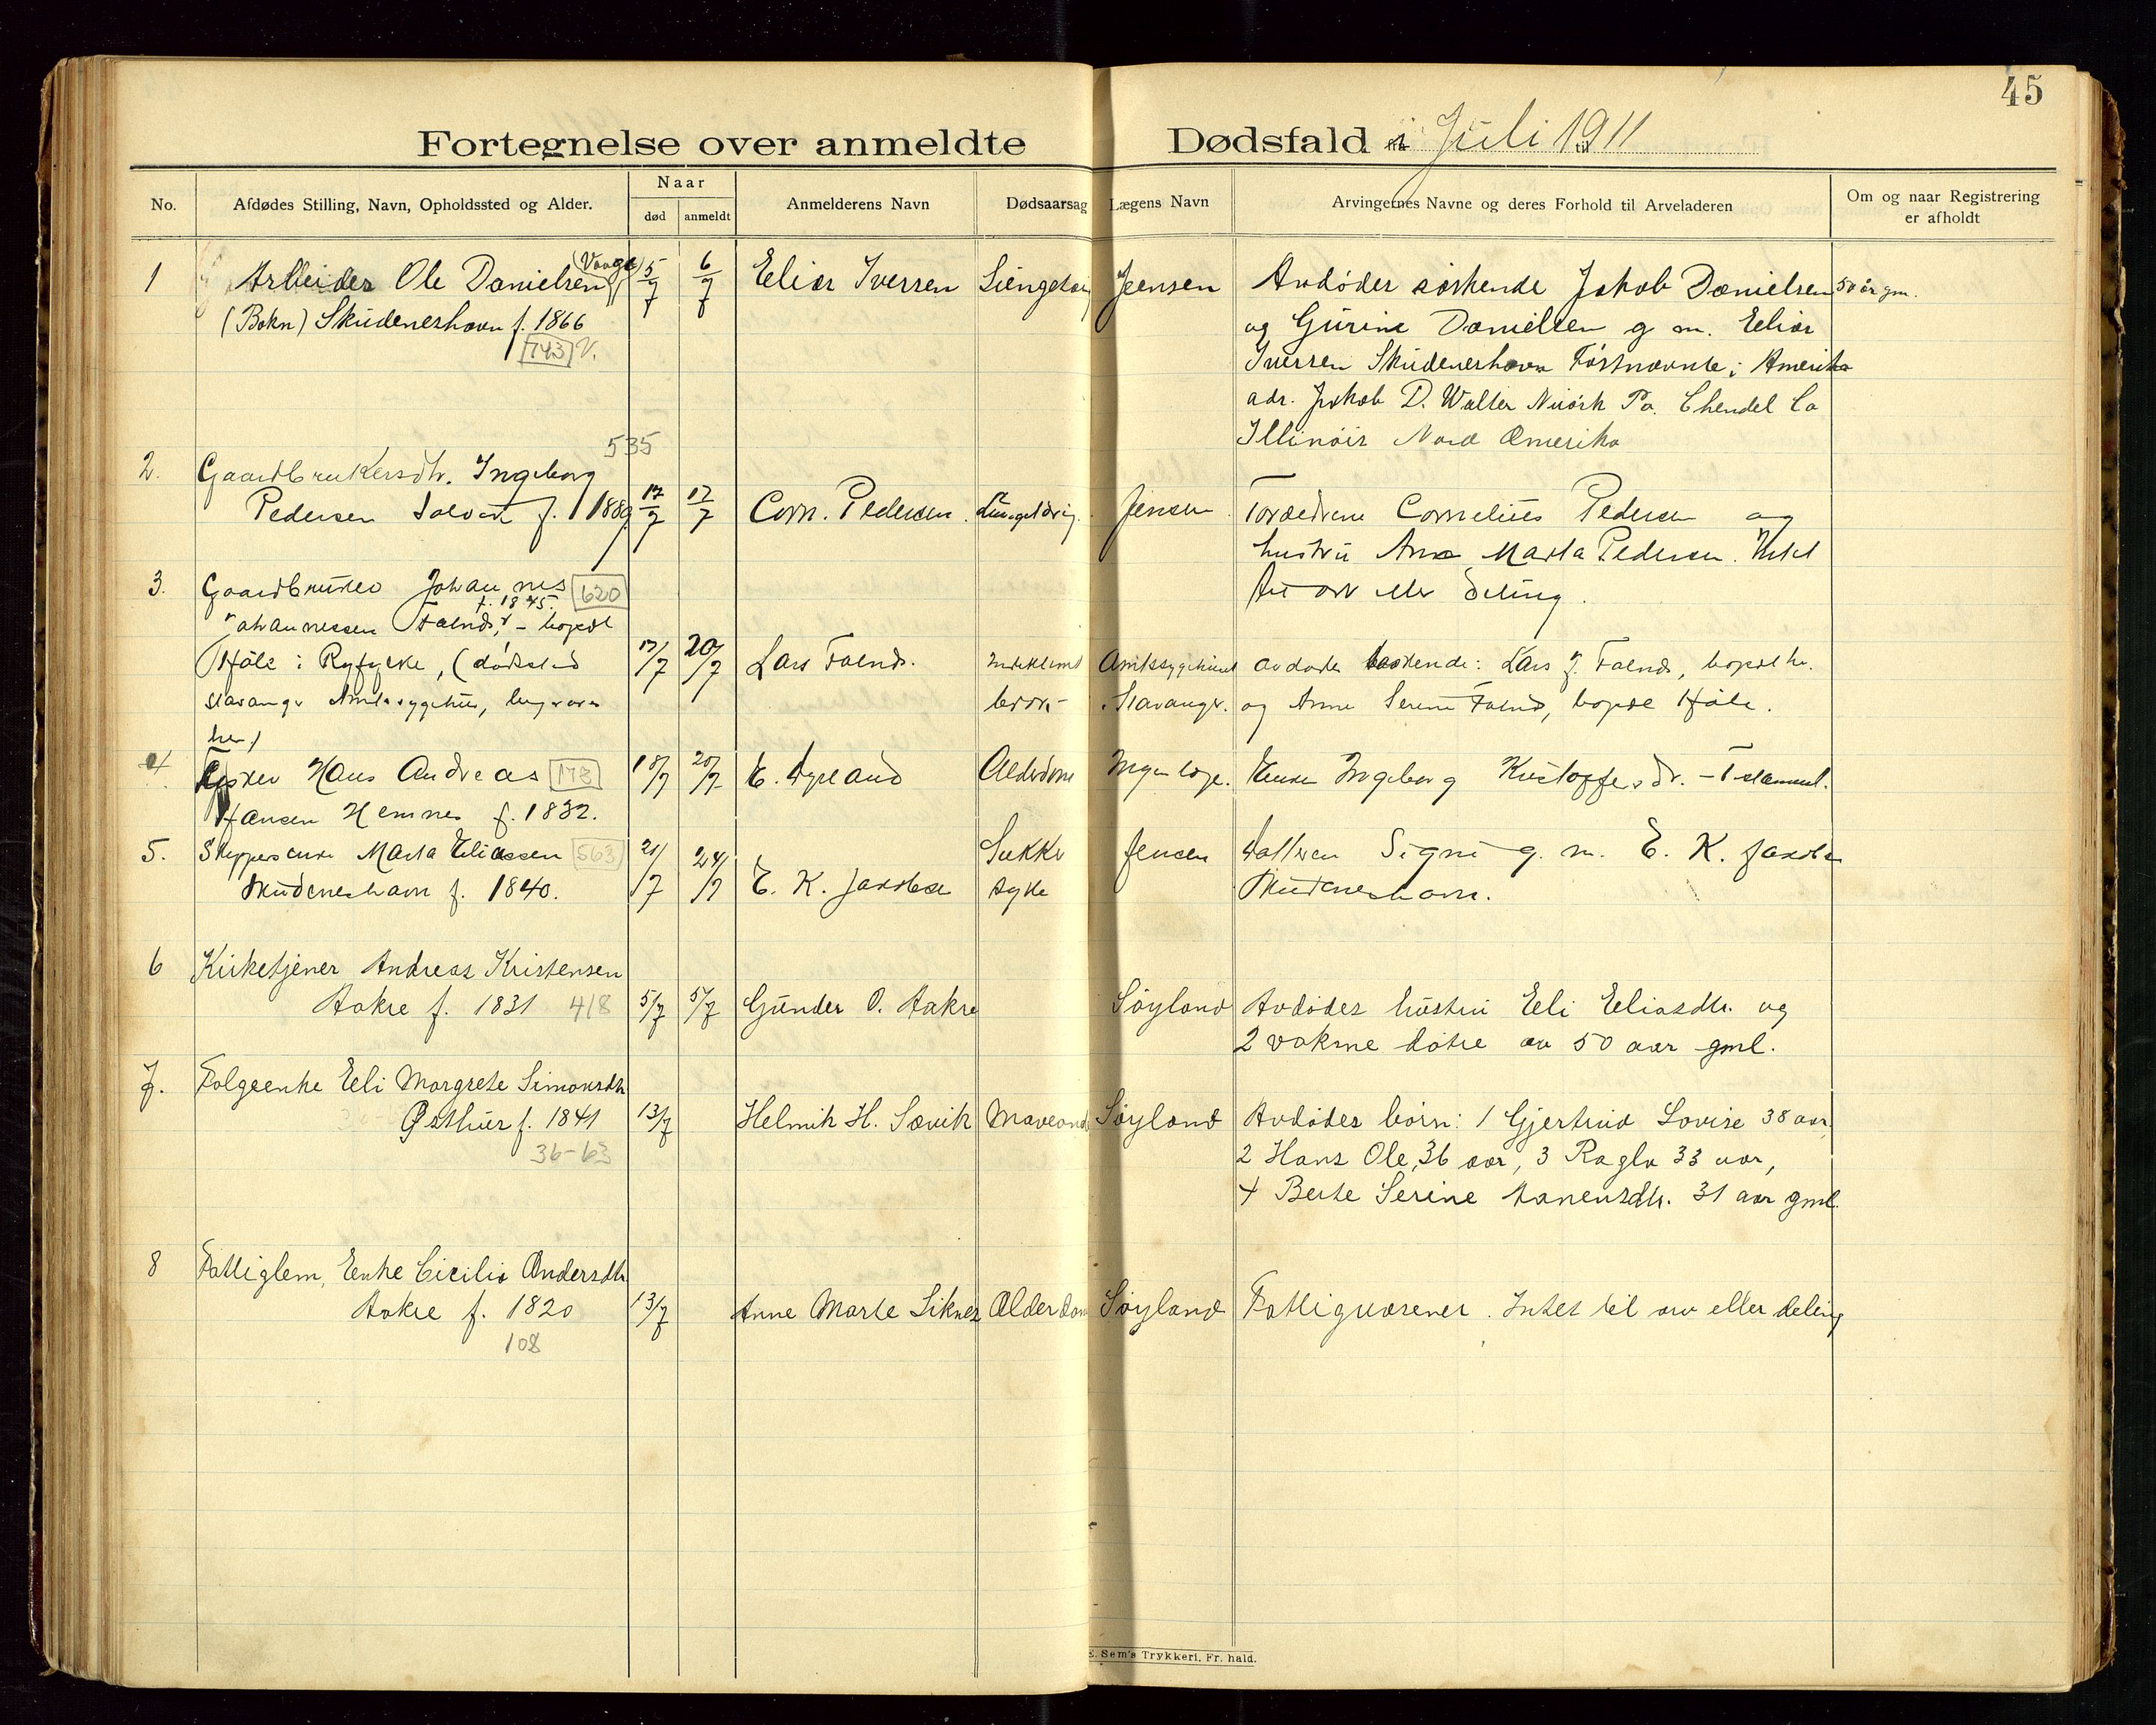 45
Fortegnelse over anmeldte Dødsfald i Juli 1911
No.
Afdødes Stilling, Navn, Opholdssted og Alder.
Naar
død
anmeldt
Anmelderens Navn
Dødsaarsag
Lægens Navn
Arvingernes Navne og deres Forhold til Arveladeren
Om og naar Registrering
er afholdt
1
Arbeider Ole Danielsen (Vaage)
(Bokn) Skudeneshavn f. 1866
743 V.
5/7
6/7
Elias Iversen
Jensen
Avdødes søskende Jakob Danielsen 50 år gm.
og Gurine Danielsen g m. Elias
Iversen Skudeneshavn Førstnævnte i Amerika
adr. Jakob D. Walter Pa. Chendel Co
Illinois Nord Amerika
535
2.
Gaardbrukersdtr. Ingeborg
Pedersen f. 1889
17/7
17/7
Corn. Pedersen
Jensen
Forældrene Cornelius Pedersen og
hustru Ana Marta Pedersen. Intet
til arv eller deling.
3.
Gaardbruker Johannes 620
f. 1845.
Johannessen Falnes, - bopæl
Håle i Ryfylke, (dødssted
Stavanger Amtssygehus, begraves
her)
17/7
20/7
Lars Falnes.
Indeklemt
brok
Amtssygehuset
Stavanger.
avdødes søskende: Lars J. Falnes, bopæl he.
og Anne Serine Falnes, bopæl Håle.
4
Hans Andreas 178
Hansen Hemnes f. 1832.
18/7
20/7
Alderdom
Ingen læge.
Enken Ingeborg Kristoffersdr.
5.
Skippersenke Marta Eliassen 563
Skudeneshavn f. 1840.
21/7
24/7
E. K. Jacobsen
Sukker
syke
Jensen
Datteren Signe g. m. E. K. Jacobsen
Skudeneshavn.
6
Kirketjener Andreas Kristensen
Aakre f. 1831 418
5/7
5/7
Gunder O. Aakre
Søyland
Avdødes hustru Eli Eliasdtr. og
2 voksne døtre av 50 aar gml.
7.
Folgeenke Eli Margrete Simonsdtr
Østhus f. 1841
36-63
13/7
Helmik H. Sævik
Maveonde
Søyland
Avdødes börn: 1 Gjertrud Lovise 38 aar,
2 Hans Ole, 36 aar, 3 Ragla 33 aar,
4 Berte Serine Aanensdtr. 31 aar gml.
8
Fattiglem, Enke Cicilie Andersdtr
Aakre f. 1820
108
13/7
Anne Marte Liknes
Alderdom
Søyland
Fattigvæsenet. Intet til arv eller deling
E. Sem's Trykkeri, Fr. hald.